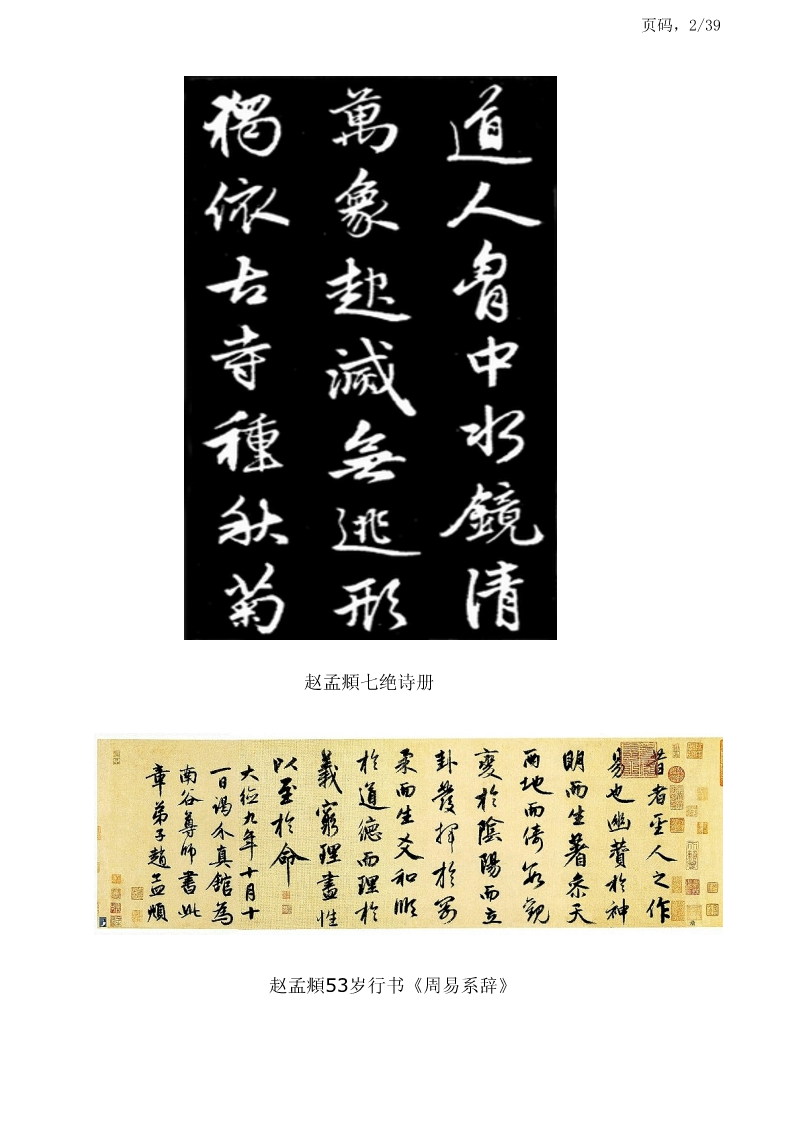 页码，2/39
道人胷中水鏡清
萬象起滅無逃形
獨依古寺種秋菊
赵孟頫七绝诗册
昔者聖人之作
易也幽贊於神
明而生蓍叅天
兩地而倚數觀
變於陰陽而立
卦發揮於剛
柔而生爻和順
於道德而理於
義窮理盡性
以至於命
大德九年十月十
一日謁介真館為
南谷尊師書此
章弟子趙孟頫
赵孟頫53岁行书《周易系辞》